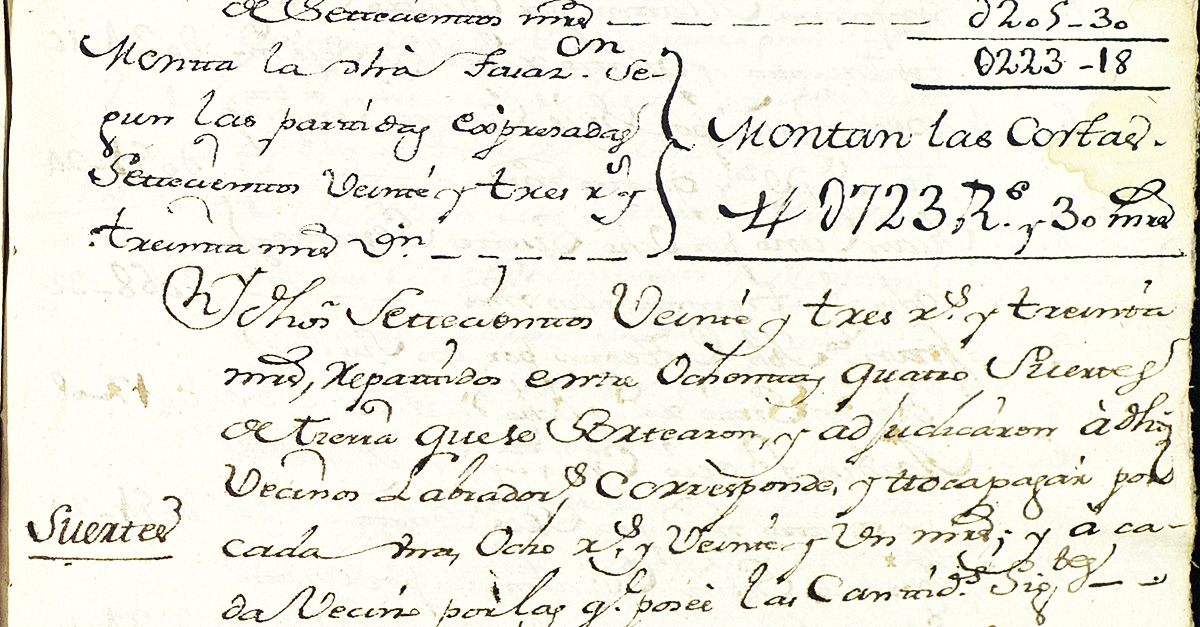 de Settecientos mrs̄ — — — — — — 0205-30
0223-18
Montta la dhā Tasaz.on Se-
gun las parttidas expresadas
Settecienttos Veintte y tres r.s y
treintta mrs̄ v.n — — — — —
Montan las Costas.
0723, R.s y 30 mrs̄
Y dhos̄ Settecienttos Veintte y tres r.s y treintta
mrs̄, Reparttidos entre Ochentta y quatro Suertes
de tierra que se Sortearon, y adjudicaron à dhōs
Vecinos Labrador.s Corresponde, y ttoca pagar por
Suertes
cada Una, Ocho r.s y Veintte y Un mrs̄; y à ca-
da Vecino por las q.e posee las Canttid.s Sig.tes — —